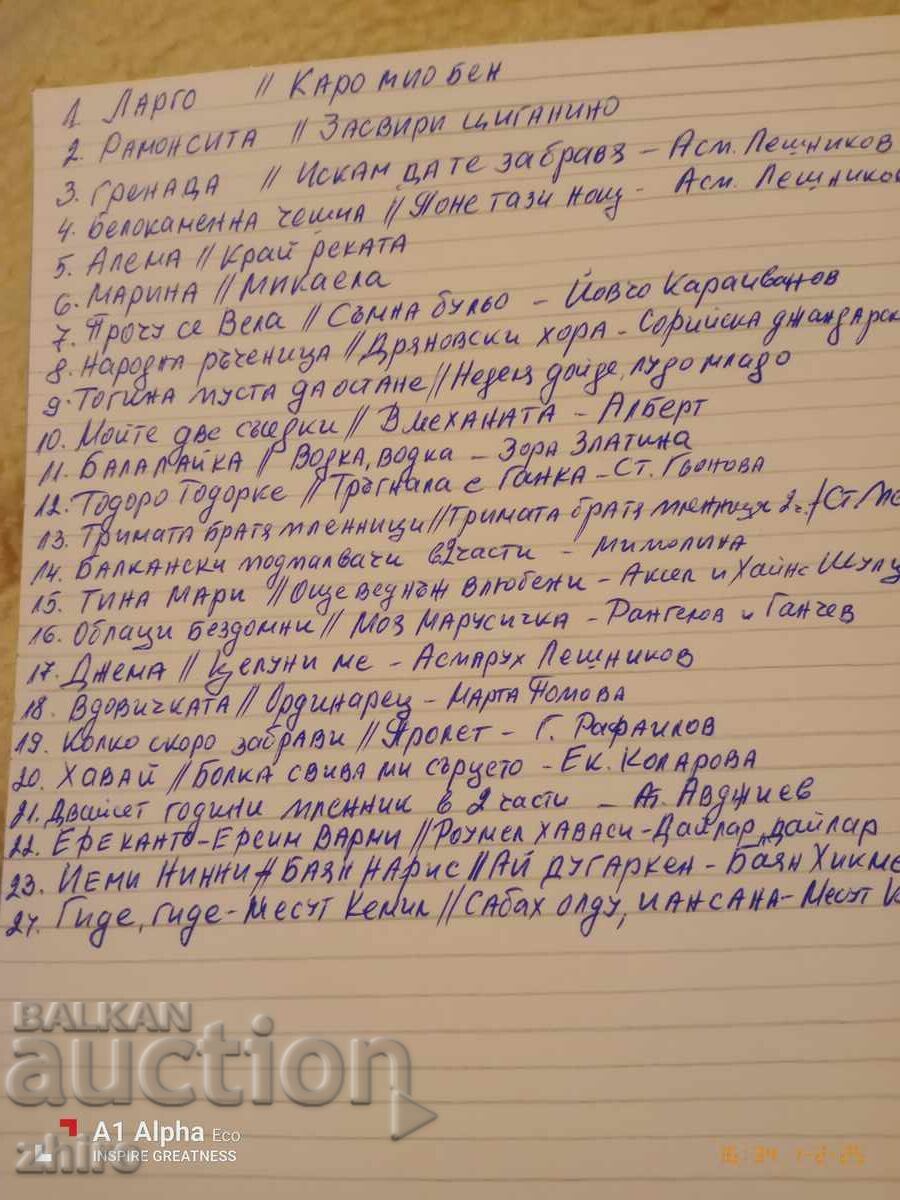 1. Ларго // Каро мио бен
2. Рамонсита // Засвири циганино
3. Гренада // Искам да те забравя - Асм. Лешников
4. Белокаменна чешма // Поне тази нощ - Асм. Лешников
5. Алема // Край реката
6. Марина // Микаела
7. Прочу се Вела // Съмна бульо - Йовчо Караиванов
8. Народна ръченица // Дряновски хора - Софийска джандарс
9. Тогина пуста да остане // Неделя дойде, лудо младо
10. Моите две съседки // В механата - Алберт
11. Балалайка // Водка, водка - Зора Златина
12. Тодоро Тодорке // Тръгнала е Ганка - Ст. Гьонова
13. Тримата братя пленници // Тримата братя пленници 2 ч. / Ст.
14. Балкански подпалвачи в 2 части - Мимолина
15. Тина Мари // Още веднъж влюбени - Аксел и Хайнс Шулц
16. Облаци бездомни // Моя Марусичка - Рангелов и Ганчев
17. Джема // Целуни ме - Аспарух Лешников
18. Вдовичката // Ординарец - Марта Попова
19. Колко скоро забрави // Пролет - Г. Рафаилов
20. Хавай // Болка свива ми сърцето - Ек. Коларова
21. Двайсет години пленник в 2 части - Ат. Авджиев
22. Ереканто - Ерсим Варми // Роумел Хаваси - Дайлар, дайлар
23. Йеми Нинни // Баян Нарис // Ай дугаркен - Баян Хикме
24. Гиде, гиде - Месут Кемил // Сабах олду, иансана - Месут К
BALKAN
auction
A1 Alpha Eco
INSPIRE GREATNESS
zhiro
16:34 1-2-25